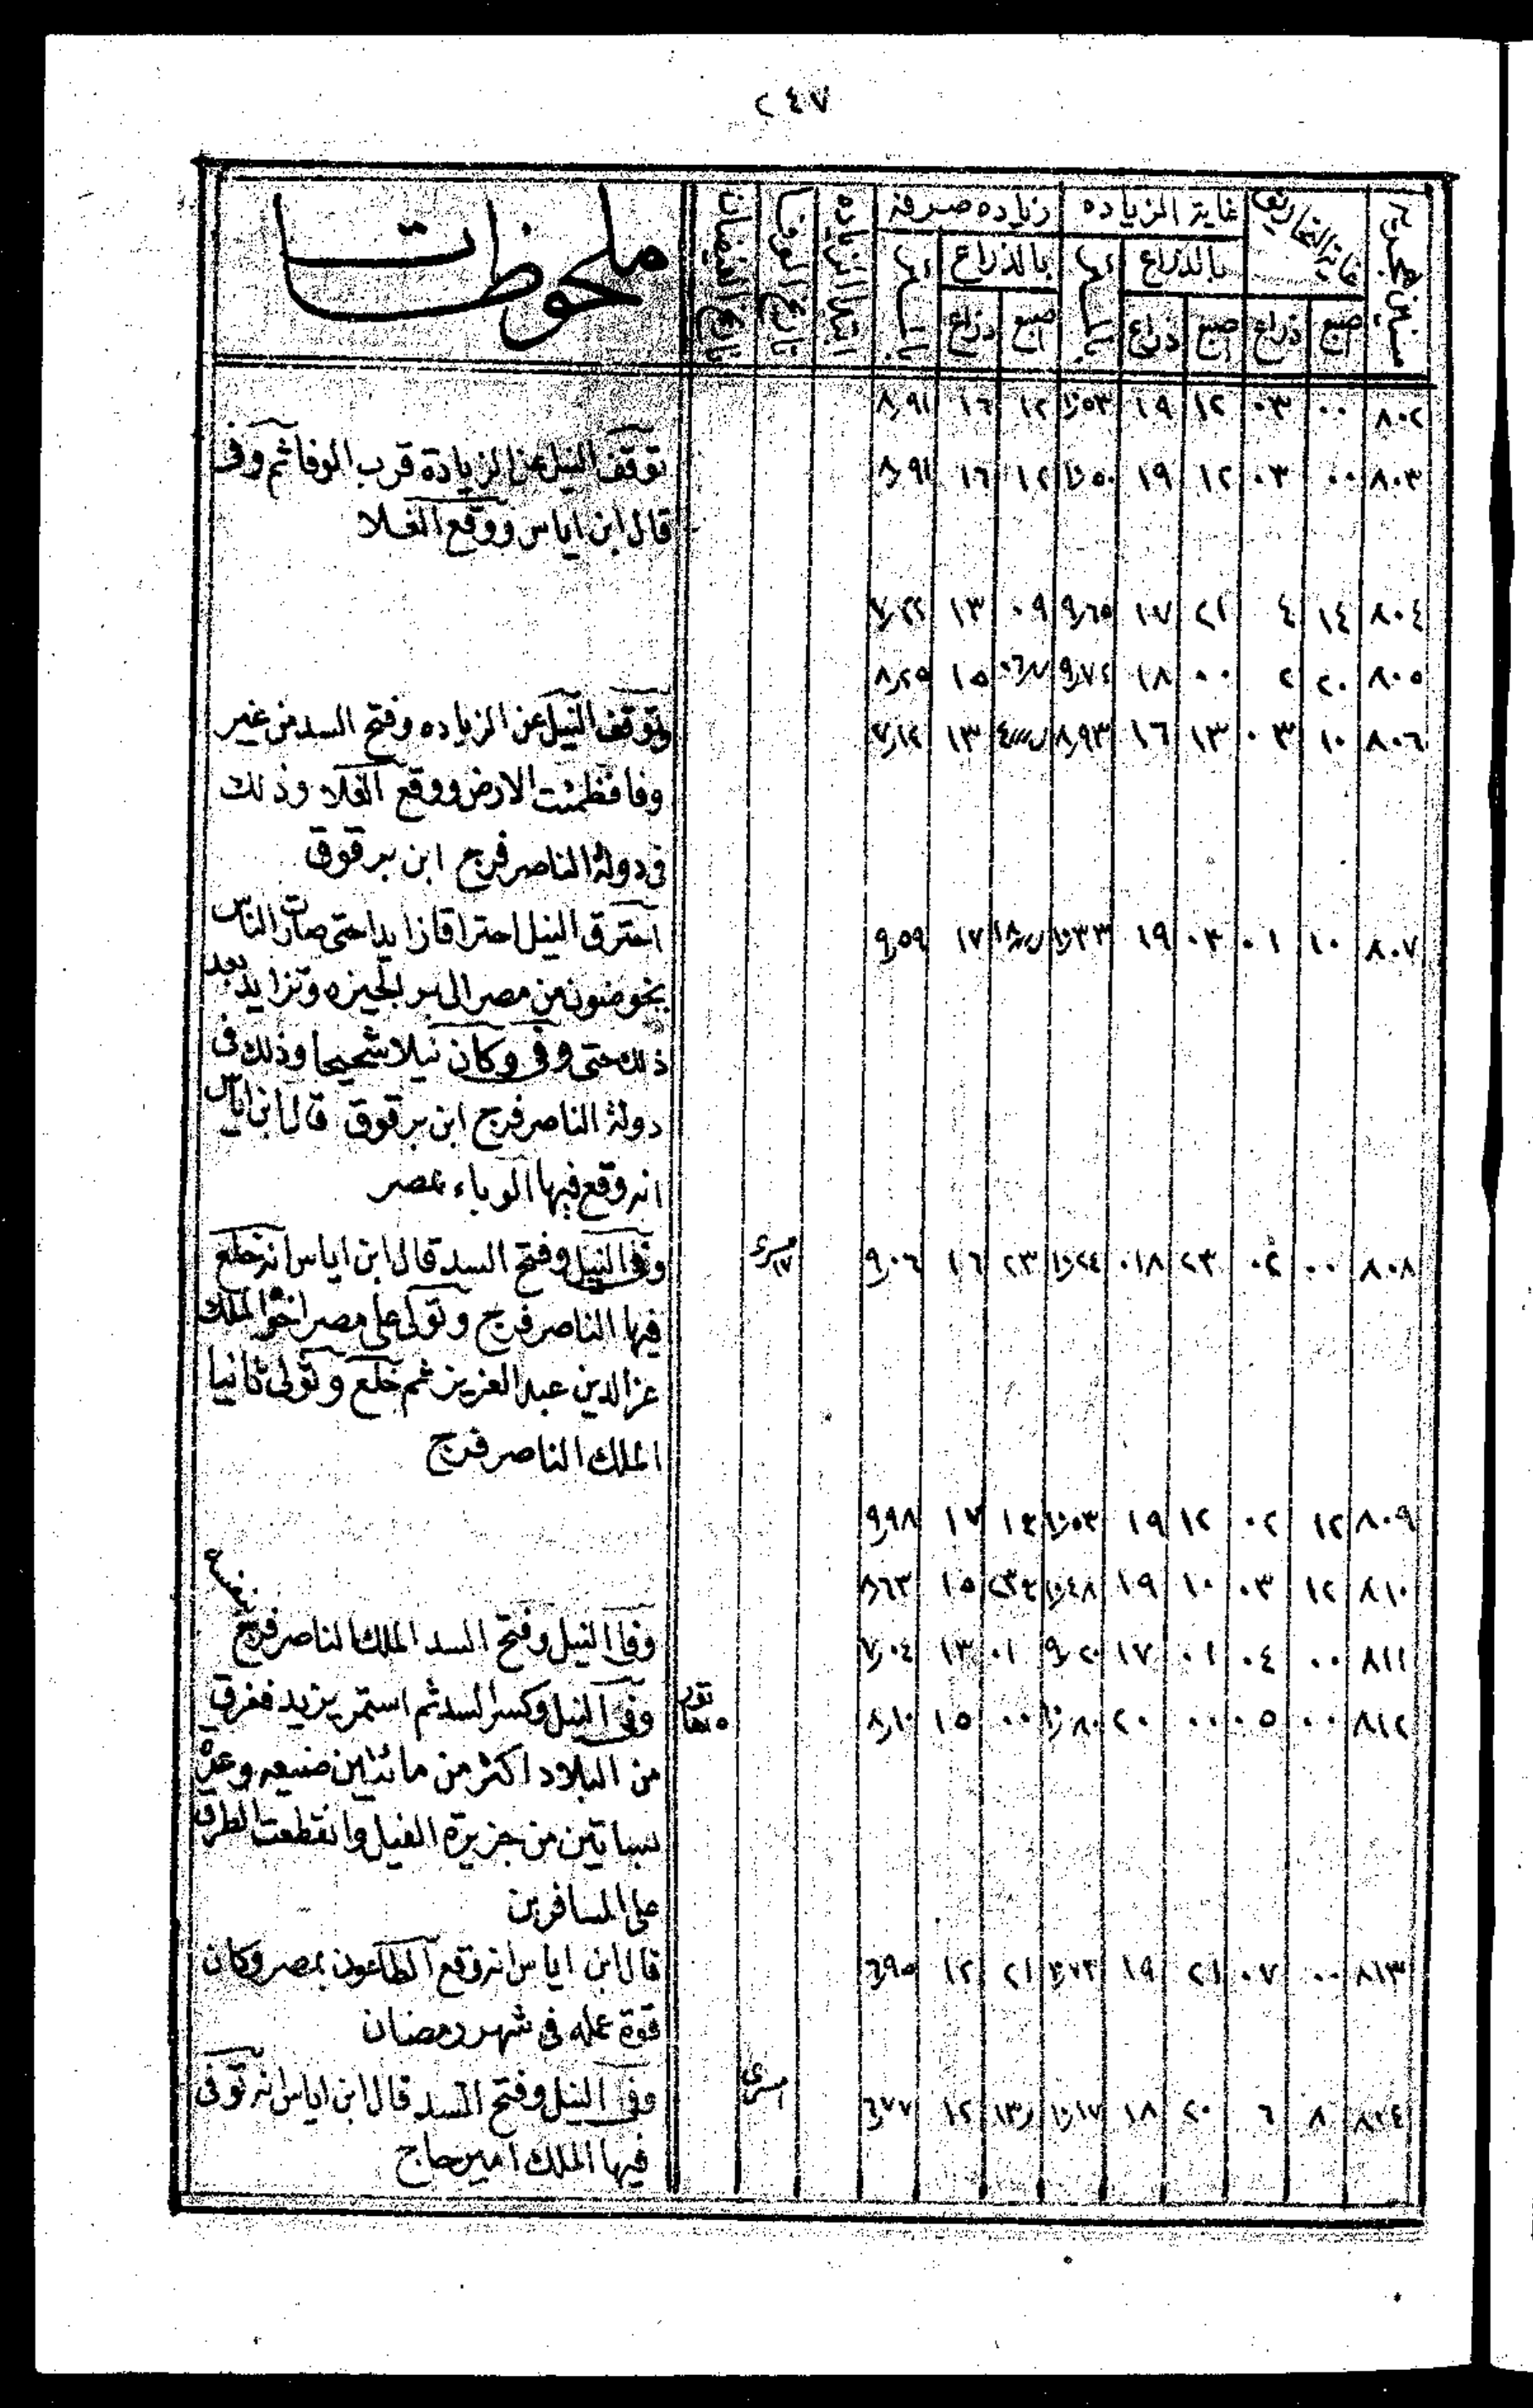 ٢٤٧
سنين هجريه | غاية التحاريق | غاية الزياده | زياده صرفه | ابتداء الزياده | تاريخ الوفا | تاريخ الفيضان | ملحوظات
بالذراع | بالذراع
اصبع | ذراع | اصبع | ذراع | اصبع | ذراع
٨٠٢ | ٠٠ | ٠٣ | ١٢ | ١٩ | ١٠٫٥٣ | ١٢ | ١٦ | ٨٫٩١
٨٠٣ | ٠٠ | ٠٣ | ١٢ | ١٩ | ١٠٫٥٠ | ١٢ | ١٦ | ٨٫٩١ | توقف النيل عن الزيادة قرب الوفا ثم وفى
قال ابن اياس ووقع الغلا
٨٠٤ | ١٤ | ٤ | ٢١ | ١٧ | ٩٫٦٥ | ٠٩ | ١٣ | ٧٫٢٢
٨٠٥ | ٢٠ | ٢ | ٠٠ | ١٨ | ٩٫٧٢ | ١٥ | ٨٫٢٥
٨٠٦ | ١٠ | ٠٣ | ١٣ | ١٦ | ٨٫٩٣ | ١٣ | ٧٫١٢ | وتوقف النيل عن الزياده وفتح السد من غير
وفا فظمئت الارض ووقع الغلا وذلك
فى دولة الناصر فرج ابن برقوق
٨٠٧ | ١٠ | ٠١ | ٠٣ | ١٩ | ١٠٫٣٣ | ١٧ | ٩٫٥٩ | احترق النيل احتراقا زايدا حتى صارت الناس
يخوضون من مصر الى بر الجيزه وتزايد بعد
ذلك حتى وفى وكان نيلا شحيحا وذلك فى
دولة الناصر فرج ابن برقوق قال ابن اياس
انه وقع فيها الوباء بمصر
٨٠٨ | ٠٠ | ٠٢ | ٢٣ | ٠١٨ | ١٠٫٢٤ | ٢٣ | ١٦ | ٩٫٠٦ | ١٧ مسرى | وفى النيل وفتح السد قال ابن اياس انه خلع
فيها الناصر فرج وتولى على مصر اخو الملك
عز الدين عبد العزيز ثم خلع وتولى ثانيا
الملك الناصر فرج
٨٠٩ | ١٢ | ٠٢ | ١٢ | ١٩ | ١٠٫٥٣ | ١٧ | ٩٫٩٨
٨١٠ | ١٢ | ٠٣ | ١٠ | ١٩ | ١٠٫٤٨ | ١٥ | ٨٫٦٣
٨١١ | ٠٠ | ٠٤ | ٠١ | ١٧ | ٩٫٢٠ | ٠١ | ١٣ | ٧٫٠٤ | وفى النيل وفتح السد الملك الناصر فرج بنفسه
٨١٢ | ٠٠ | ٠٥ | ٠٠ | ٢٠ | ١٠٫٨٠ | ٠٠ | ١٥ | ٨٫١٠ | وفى النيل وكسر السد ثم استمر يزيد فغرق
من البلاد اكثر من مائتاين ضيعه وعدة
بساتين من جزيرة الفيل وانقطعت الطرق
على المسافرين
٨١٣ | ٠٠ | ٠٧ | ٢١ | ١٩ | ٢١ | ١٢ | ٦٫٩٥ | قال ابن اياس انه وقع الطاعون بمصر وكان
قوة عمله فى شهر رمضان
٨١٤ | ٨ | ٦ | ٢٠ | ١٨ | ١٠٫١٧ | ١٢ | ٦٫٧٧ | مسرى | وفى النيل وفتح السد قال ابن اياس انه توفى
فيها الملك امير حاج